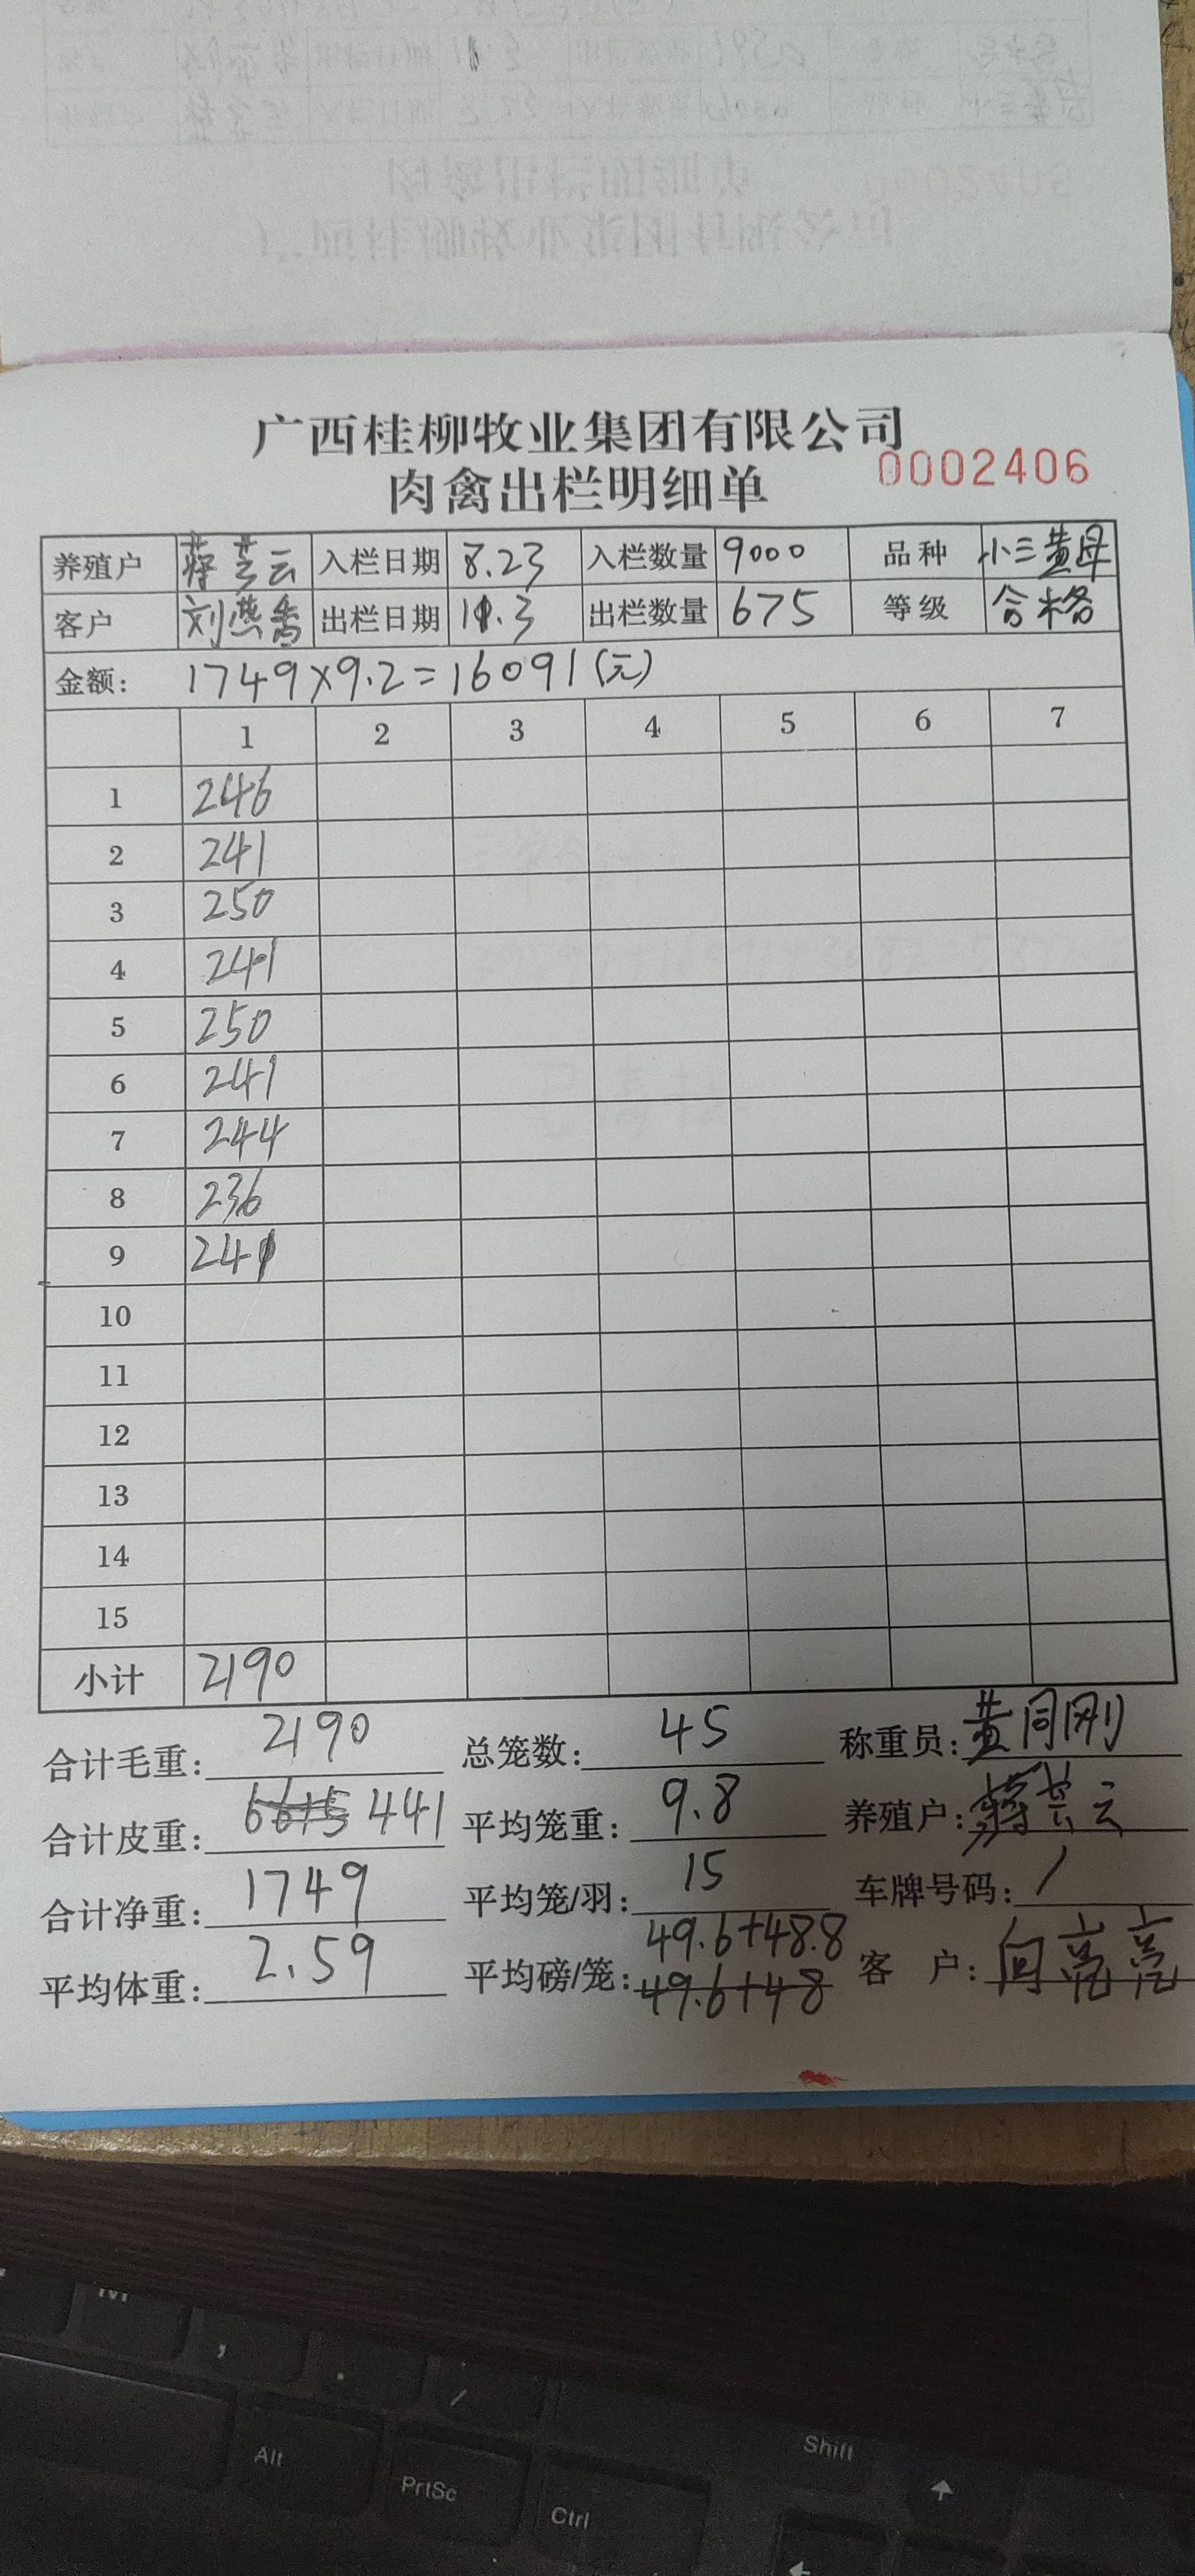 广西桂柳牧业集团有限公司
肉禽出栏明细单 0002406
养殖户 蒋芸云 入栏日期 8.23 入栏数量 9000 品种 小三黄母
客户 刘燕 出栏日期 11.3 出栏数量 675 等级 合格
金额: 1749×9.2=16091(元)
1 2 3 4 5 6 7
1 246
2 241
3 250
4 241
5 250
6 241
7 244
8 236
9 241
10
11
12
13
14
15
小计 2190
合计毛重: 2190 总笼数: 45 称重员: 黄同刚
合计皮重: 6615 441 平均笼重: 9.8 养殖户: 蒋芸云
合计净重: 1749 平均笼/羽: 15 车牌号码: /
平均体重: 2.59 平均磅/笼: 49.6+48.8 客 户: 向亮亮
49.6+48
M
, . /
Alt PrtSc Ctrl Shift